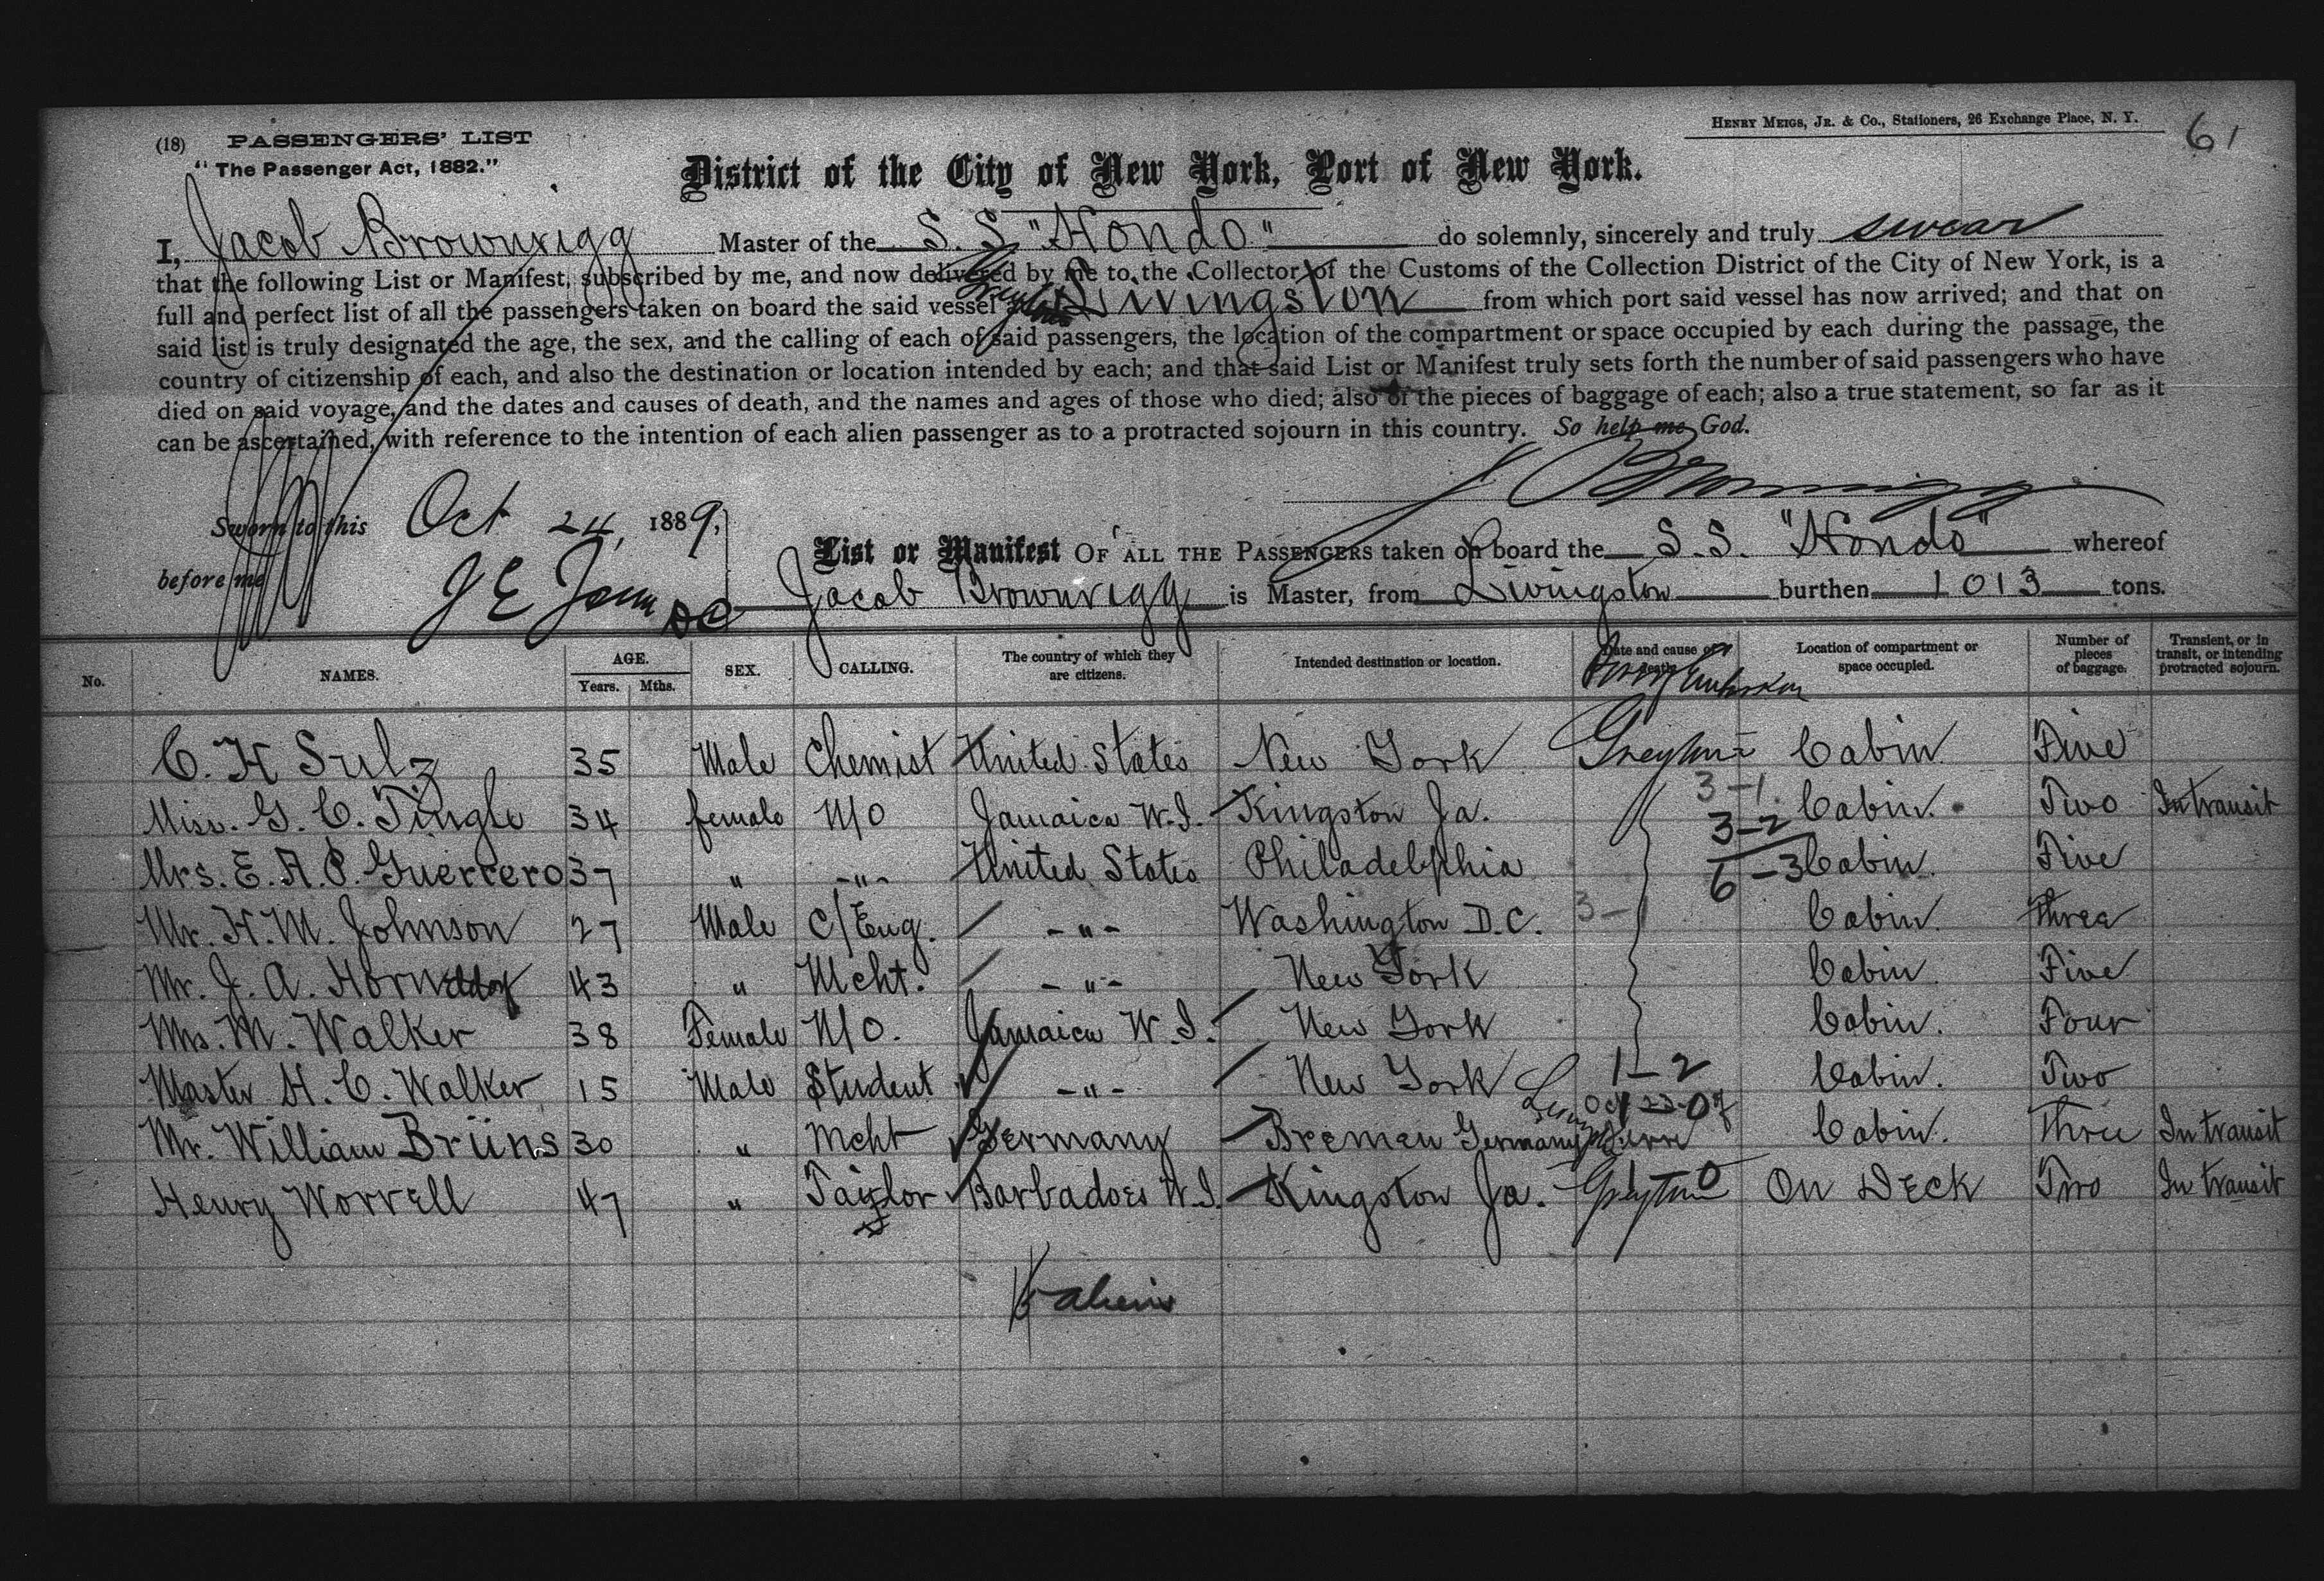 HENRY MEIGS, JR. & CO., Stationers, 26 Exchange Place, N. Y.
61
(18) PASSENGERS' LIST
"The Passenger Act, 1882."
District of the City of New York, Port of New York.
I, Jacob Brownrigg Master of the S. S. "Hondo" do solemnly, sincerely and truly swear
that the following List or Manifest, subscribed by me, and now delivered by me to the Collector of the Customs of the Collection District of the City of New York, is a
full and perfect list of all the passengers taken on board the said vessel at Livingston from which port said vessel has now arrived; and that on
said list is truly designated the age, the sex, and the calling of each of said passengers, the location of the compartment or space occupied by each during the passage, the
country of citizenship of each, and also the destination or location intended by each; and that said List or Manifest truly sets forth the number of said passengers who have
died on said voyage, and the dates and causes of death, and the names and ages of those who died; also of the pieces of baggage of each; also a true statement, so far as it
can be ascertained, with reference to the intention of each alien passenger as to a protracted sojourn in this country. So help me God.
J Brownrigg
Sworn to this Oct 24, 1889,
before me J E
List or Manifest OF ALL THE PASSENGERS taken on board the S. S. "Hondo" whereof
Jacob Brownrigg is Master, from Livingston burthen 1013 tons.
No. NAMES. AGE. Years. Mths. SEX. CALLING. The country of which they are citizens. Intended destination or location. Date and cause of death. Location of compartment or space occupied. Number of pieces of baggage. Transient, or in transit, or intending protracted sojourn.
C. H Sulz 35 Male Chemist United States New York Greytown Cabin Five
3-1
Miss. G. C. Tingle 34 female N/O Jamaica W.I. Kingston Ja. Cabin. Two In transit
3-2
Mrs. E. A. P. Guerrero 37 " -"- United States Philadelphia Cabin. Five
6-3
Mr. H. M. Johnson 27 Male C/Eng. -"- Washington D.C. 3-1 Cabin. Three
Mr. J. A. 43 " Mcht. -"- New York Cabin Five
Mrs. M. Walker 38 Female N/O. Jamaica W.I. New York Cabin. Four
Master H. C. Walker 15 Male Student -"- New York 1-2 Cabin. Two
Mr. William Brüns 30 " Mcht Germany Bremen Germany Cabin. Three In transit
Henry Worrell 47 " Taylor Barbadoes W.I. Kingston Ja. Greytown On Deck Two In transit
aliens